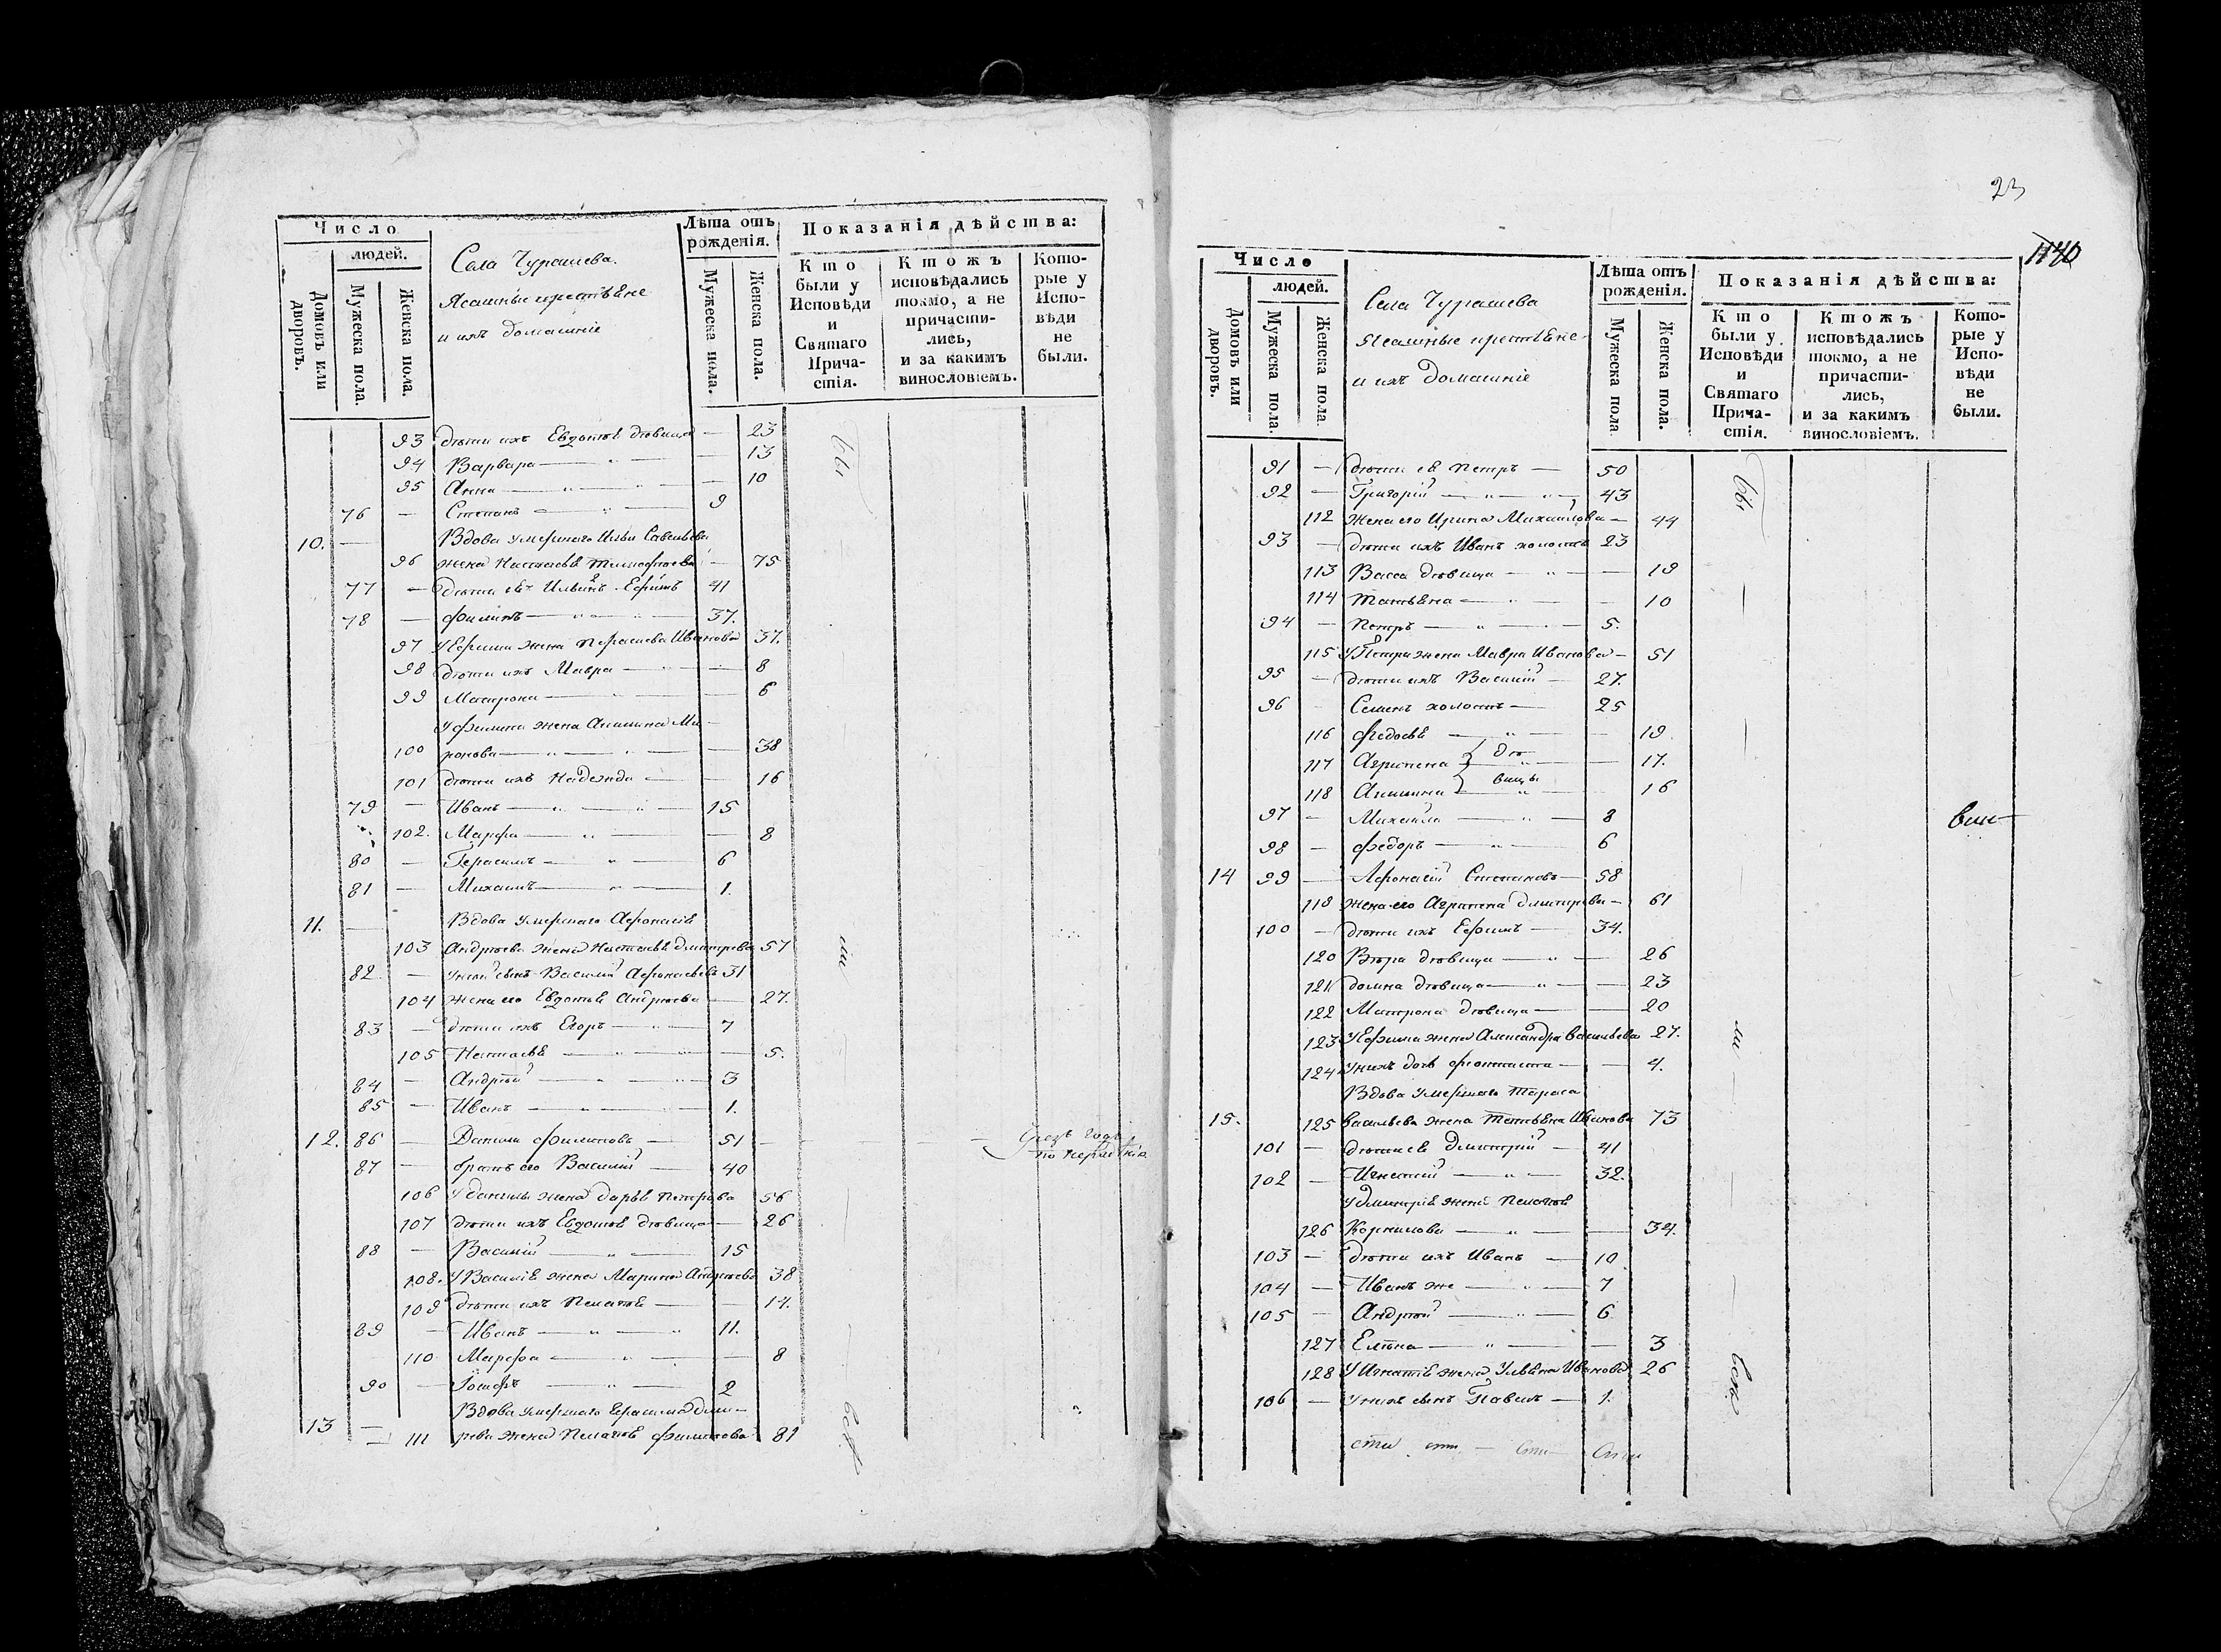 Число
людей.
Домовъ или дворовъ.
Мужеска пола.
Женска пола.
Села Чурашева.
Ясашные крестьяне
и ихъ домашніе
Лѣта отъ рожденія.
Мужеска пола.
Женска пола.
Показанія дѣйства:
Кто были у Исповѣди и Святаго Причастія.
Ктожъ исповѣдались токмо, а не причастились, и за какимъ винословіемъ.
Которые у Исповѣди не были.
93 дѣти ихъ Евдотья дѣвица — 23
94 Варвара — " — 13
95 Анна — " — 10
76 — Степанъ — " — 9
10. — Вдова умершаго Ильи Савельева
96 жена Настасья Тимофѣева — 75
77 — дѣти ея Ильинъ Ефимъ 41
78 — Филипъ — " — 37.
97 У Ефима жена Парасковья Иванова 37.
98 дѣти ихъ Мавра — 8
99 Матрона — " — 6
У Филипа жена Акилина Ми-
100 ронова — " — 38
101 дѣти ихъ Надежда — 16
79 — Иванъ — " — 15
102. Марфа — " — 8
80 — Герасимъ — " — 6
81 — Михаилъ — " — 1.
11. — Вдова умершаго Афонасія
103 Андрѣева жена Настасья Дмитрева 57
82 — у ней сынъ Василій Афонасьевъ 31
104 жена его Евдотья Андрѣева — 27.
83 — дѣти ихъ Егоръ — " — 7
105 Настасья — " — 5.
84 — Андрей — " — 3
85 — Иванъ — " — 1.
12. 86 — Данила Филиповъ — 51
87 — братъ его Василій — 40
106 У Данилы жена Дарья Петрова 56
107 дѣти ихъ Евдотья дѣвица — 26
88 — Василій — " — 15
108. У Василія жена Марина Андрѣева 38
109 дѣти ихъ Пелагея — 17.
89 — Иванъ — " — 11.
110 Марфа — " — 8
90 — Іосифъ — " — 2
Вдова умершаго Герасима Дми-
13 — 111 рева жена Пелагея Филипова 81
бы
ли
всѣ
23
1140
Число
людей.
Домовъ или дворовъ.
Мужеска пола.
Женска пола.
Села Чурашева
Ясашные крестьяне
и ихъ домашніе
Лѣта отъ рожденія.
Мужеска пола.
Женска пола.
Показанія дѣйства:
Кто были у Исповѣди и Святаго Причастія.
Ктожъ исповѣдались токмо, а не причастились, и за какимъ винословіемъ.
Которые у Исповѣди не были.
91 — дѣти ея Петръ — 50
92 — Григорій — " — 43
112 жена его Ирина Михайлова — 44
93 — дѣти ихъ Иванъ холостъ 23
113 Васса дѣвица — " — 19
114 Татьяна — " — 10
94 — Петръ — " — 5.
115 У Петра жена Мавра Иванова — 51
95 — дѣти ихъ Василій — 27.
96 — Семенъ холостъ — 25
116 Федосья — " — 19.
117 Агрипена } дѣ- — 17.
118 Акилина } вицы — 16
97 — Михаила — " — 8
98 — Федоръ — " — 6
14 99 — Афонасій Степановъ — 58
119 жена его Агрипена Дмитрева — 61
100 — дѣти ихъ Ефимъ — 34.
120 Вѣра дѣвица — " — 26
121 Домна дѣвица — " — 23
122 Матрона дѣвица — 20
123 У Ефима жена Александра Васильева 27.
124 у нихъ дочь Феоктиста — 4.
Вдова умершаго Тараса
15. 125 Васильева жена Татьяна Иванова 73
101 — дѣти ея Дмитрій — 41
102 — Игнатій — " — 32.
У Дмитрія жена Пелагея
126 Корнилова — " — 34.
103 — дѣти ихъ Иванъ — 10
104 — Иванъ же — " — 7
105 — Андрей — " — 6
127 Елена — " — 3
128 У Игнатія жена Ульяна Иванова 26
106 — у нихъ сынъ Павелъ — 1.
бы
ли